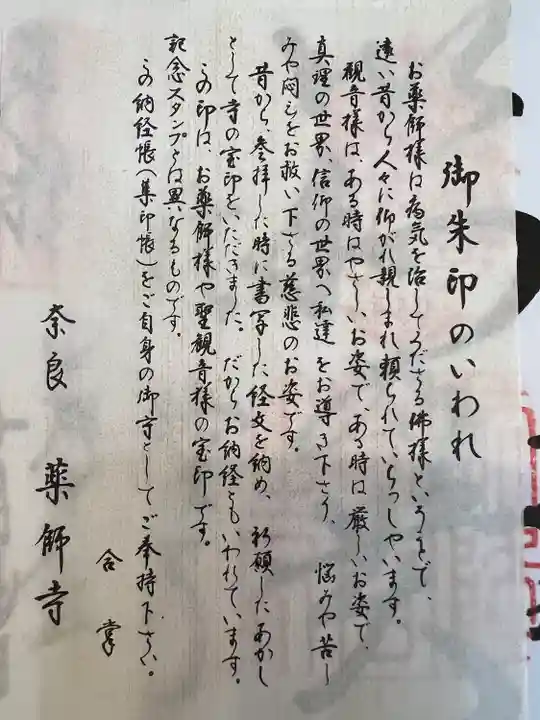 御朱印のいわれ
お薬師様は病気を治してくださる佛様ということで、
遠い昔から人々に仰がれ親しまれ頼られていらっしゃいます。
観音様は、ある時はやさしいお姿で、ある時は厳しいお姿で、
真理の世界、信仰の世界へ私達をお導き下さり、悩みや苦し
みや悶えをお救い下さる慈悲のお姿です。
昔から、参拝した時に書写した経文を納め、祈願したあかし
として寺の宝印をいただきました。だからお納経ともいわれています。
この印は、お薬師様や聖観音様の宝印です。
記念スタンプとは異なるものです。
この納経帳(集印帳)をご自身の御守としてご奉持下さい。
合掌
奈良 薬師寺